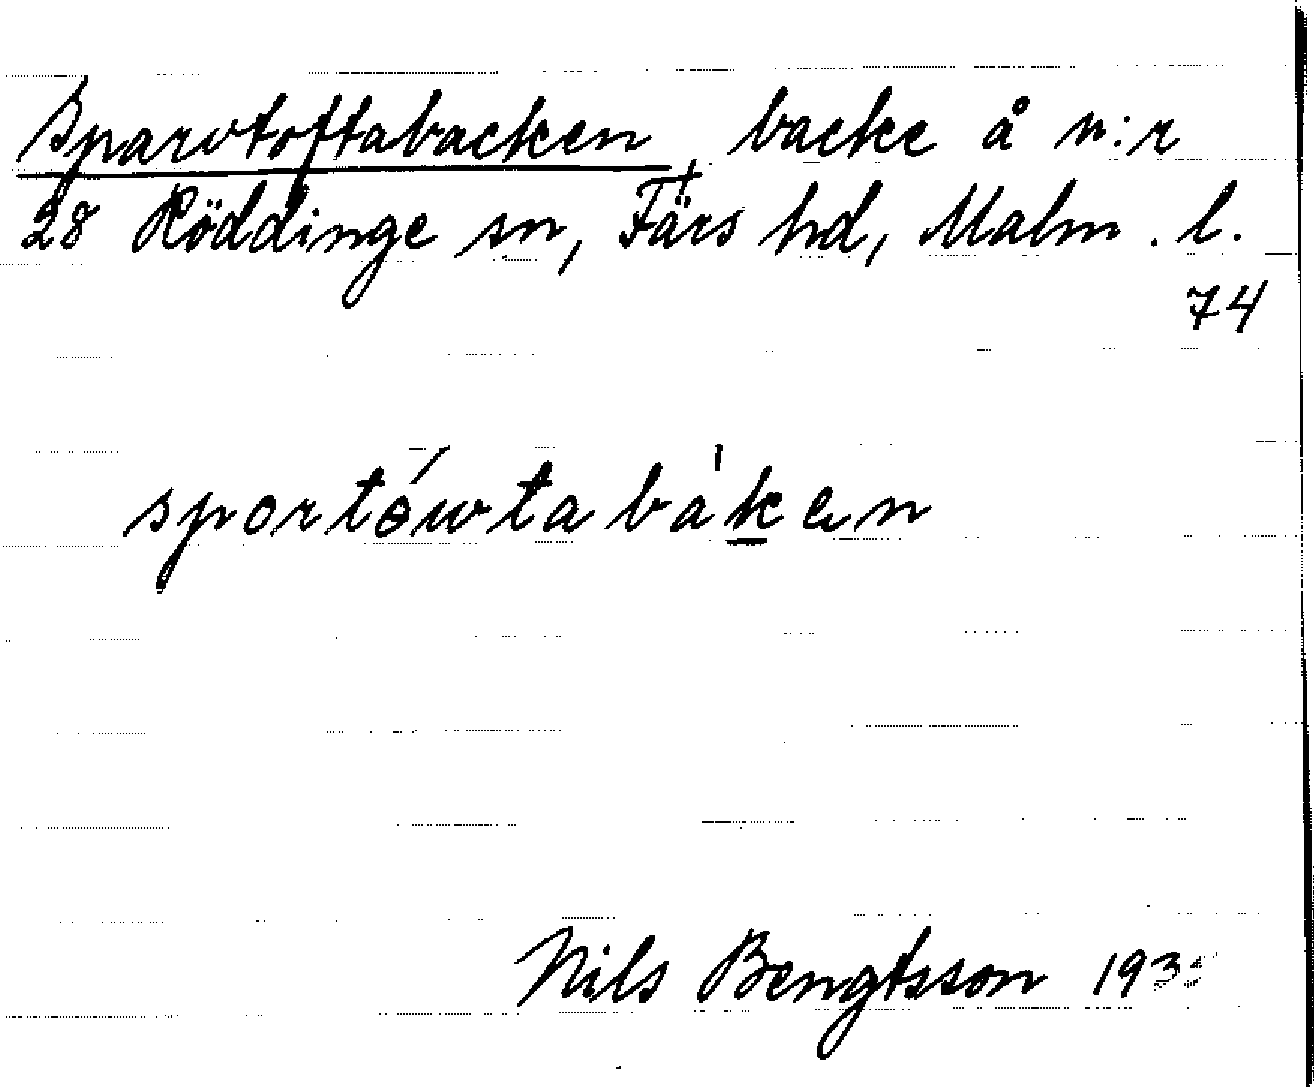 Sparvtoftabacken + backe å n:r
28 Röddinge sn, Färs hd, Malm. l.
74
sportówtabáken
Nils Bengtsson